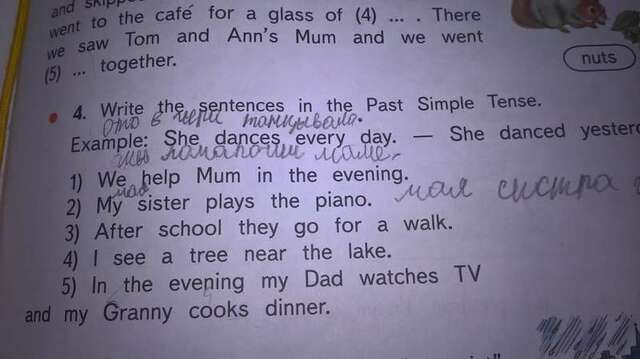 and skipped
went to the café for a glass of (4) ... . There
we saw Tom and Ann's Mum and we went
(5) ... together.
nuts
4. Write the sentences in the Past Simple Tense.
танцывала.
Example: She dances every day. — She danced yester
маме.
1) We help Mum in the evening.
мая
2) My sister plays the piano. моя систра
3) After school they go for a walk.
4) I see a tree near the lake.
5) In the evening my Dad watches TV
and my Granny cooks dinner.